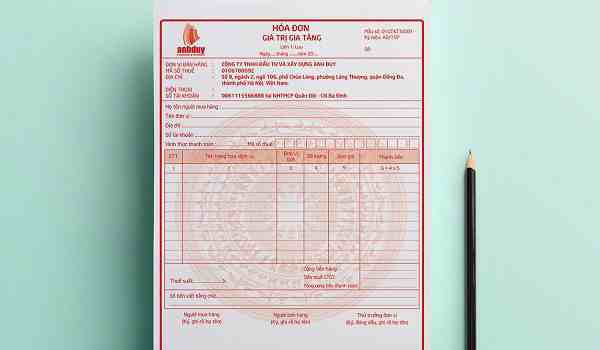 HÓA ĐƠN
GIÁ TRỊ GIA TĂNG
Liên 1: Lưu
Ngày..... tháng ........ năm 20.....
Mẫu số: 01GTKT3/001
Ký hiệu: AD/15P
Số:
anbduy
ĐƠN VỊ BÁN HÀNG : CÔNG TY TNHH ĐẦU TƯ VÀ XÂY DỰNG ANH DUY
MÃ SỐ THUẾ : 0106780092
ĐỊA CHỈ : Số 8, ngách 2, ngõ 106, phố Chùa Láng, phường Láng Thượng, quận Đống Đa,
thành phố Hà Nội, Việt Nam
ĐIỆN THOẠI :
SỐ TÀI KHOẢN : tại NHTMCP Quân Đội - CN Ba Đình
Họ tên người mua hàng:
Tên đơn vị:
Địa chỉ:
Số tài khoản:
Hình thức thanh toán: Mã số thuế:
STT Tên hàng hóa, dịch vụ Đơn vị tính Số lượng Đơn giá Thành tiền
1 2 3 4 5 6 = 4 x 5
Cộng tiền hàng:
Thuế suất: Tiền thuế GTGT:
Tổng cộng tiền thanh toán:
Số tiền viết bằng chữ:
Người mua hàng Người bán hàng Thủ trưởng đơn vị
(Ký, ghi rõ họ tên) (Ký, ghi rõ họ tên) (Ký, đóng dấu, ghi rõ họ tên)